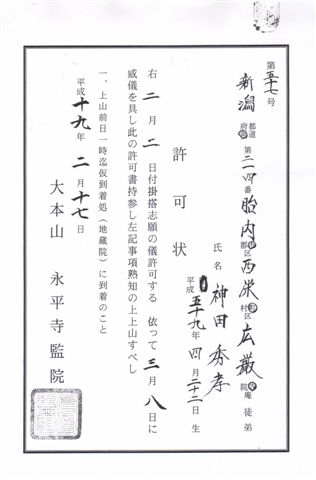 第五十七号
新潟 都道府県 第二一四番 胎内 市区郡 西栄 町区村 広厳 寺院庵 徒弟
氏名 神田秀孝
平成 五十九年 四月二十二日生
許可状
右二月二日付掛搭志願の儀許可する 依って三月八日に
威儀を具し此の許可書持参し左記事項熟知の上上山すべし
一、上山前日一時迄仮到着処(地蔵院)に到着のこと
平成十九年二月十七日
大本山 永平寺監院